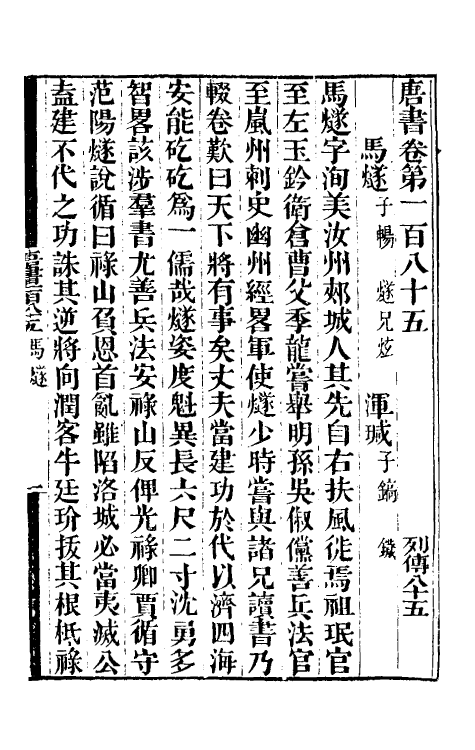 唐書卷第一百八十五　列傳八十五
馬燧子暢　燧兄炫　渾瑊子鎬　鐬
馬燧字洵美汝州郟城人其先自右扶風徙焉祖珉官
至左玉鈐衛倉曹父季龍嘗舉明孫吳俶儻善兵法官
至嵐州刺史幽州經畧軍使燧少時嘗與諸兄讀書乃
輟卷歎曰天下將有事矣丈夫當建功於代以濟四海
安能矻矻爲一儒哉燧姿度魁異長六尺二寸沈勇多
智畧該涉羣書尤善兵法安祿山反俾光祿卿賈循守
范陽燧說循曰祿山負恩首亂雖陷洛城必當夷滅公
盍建不代之功誅其逆將向潤客牛廷玠拔其根柢祿
馬燧
一